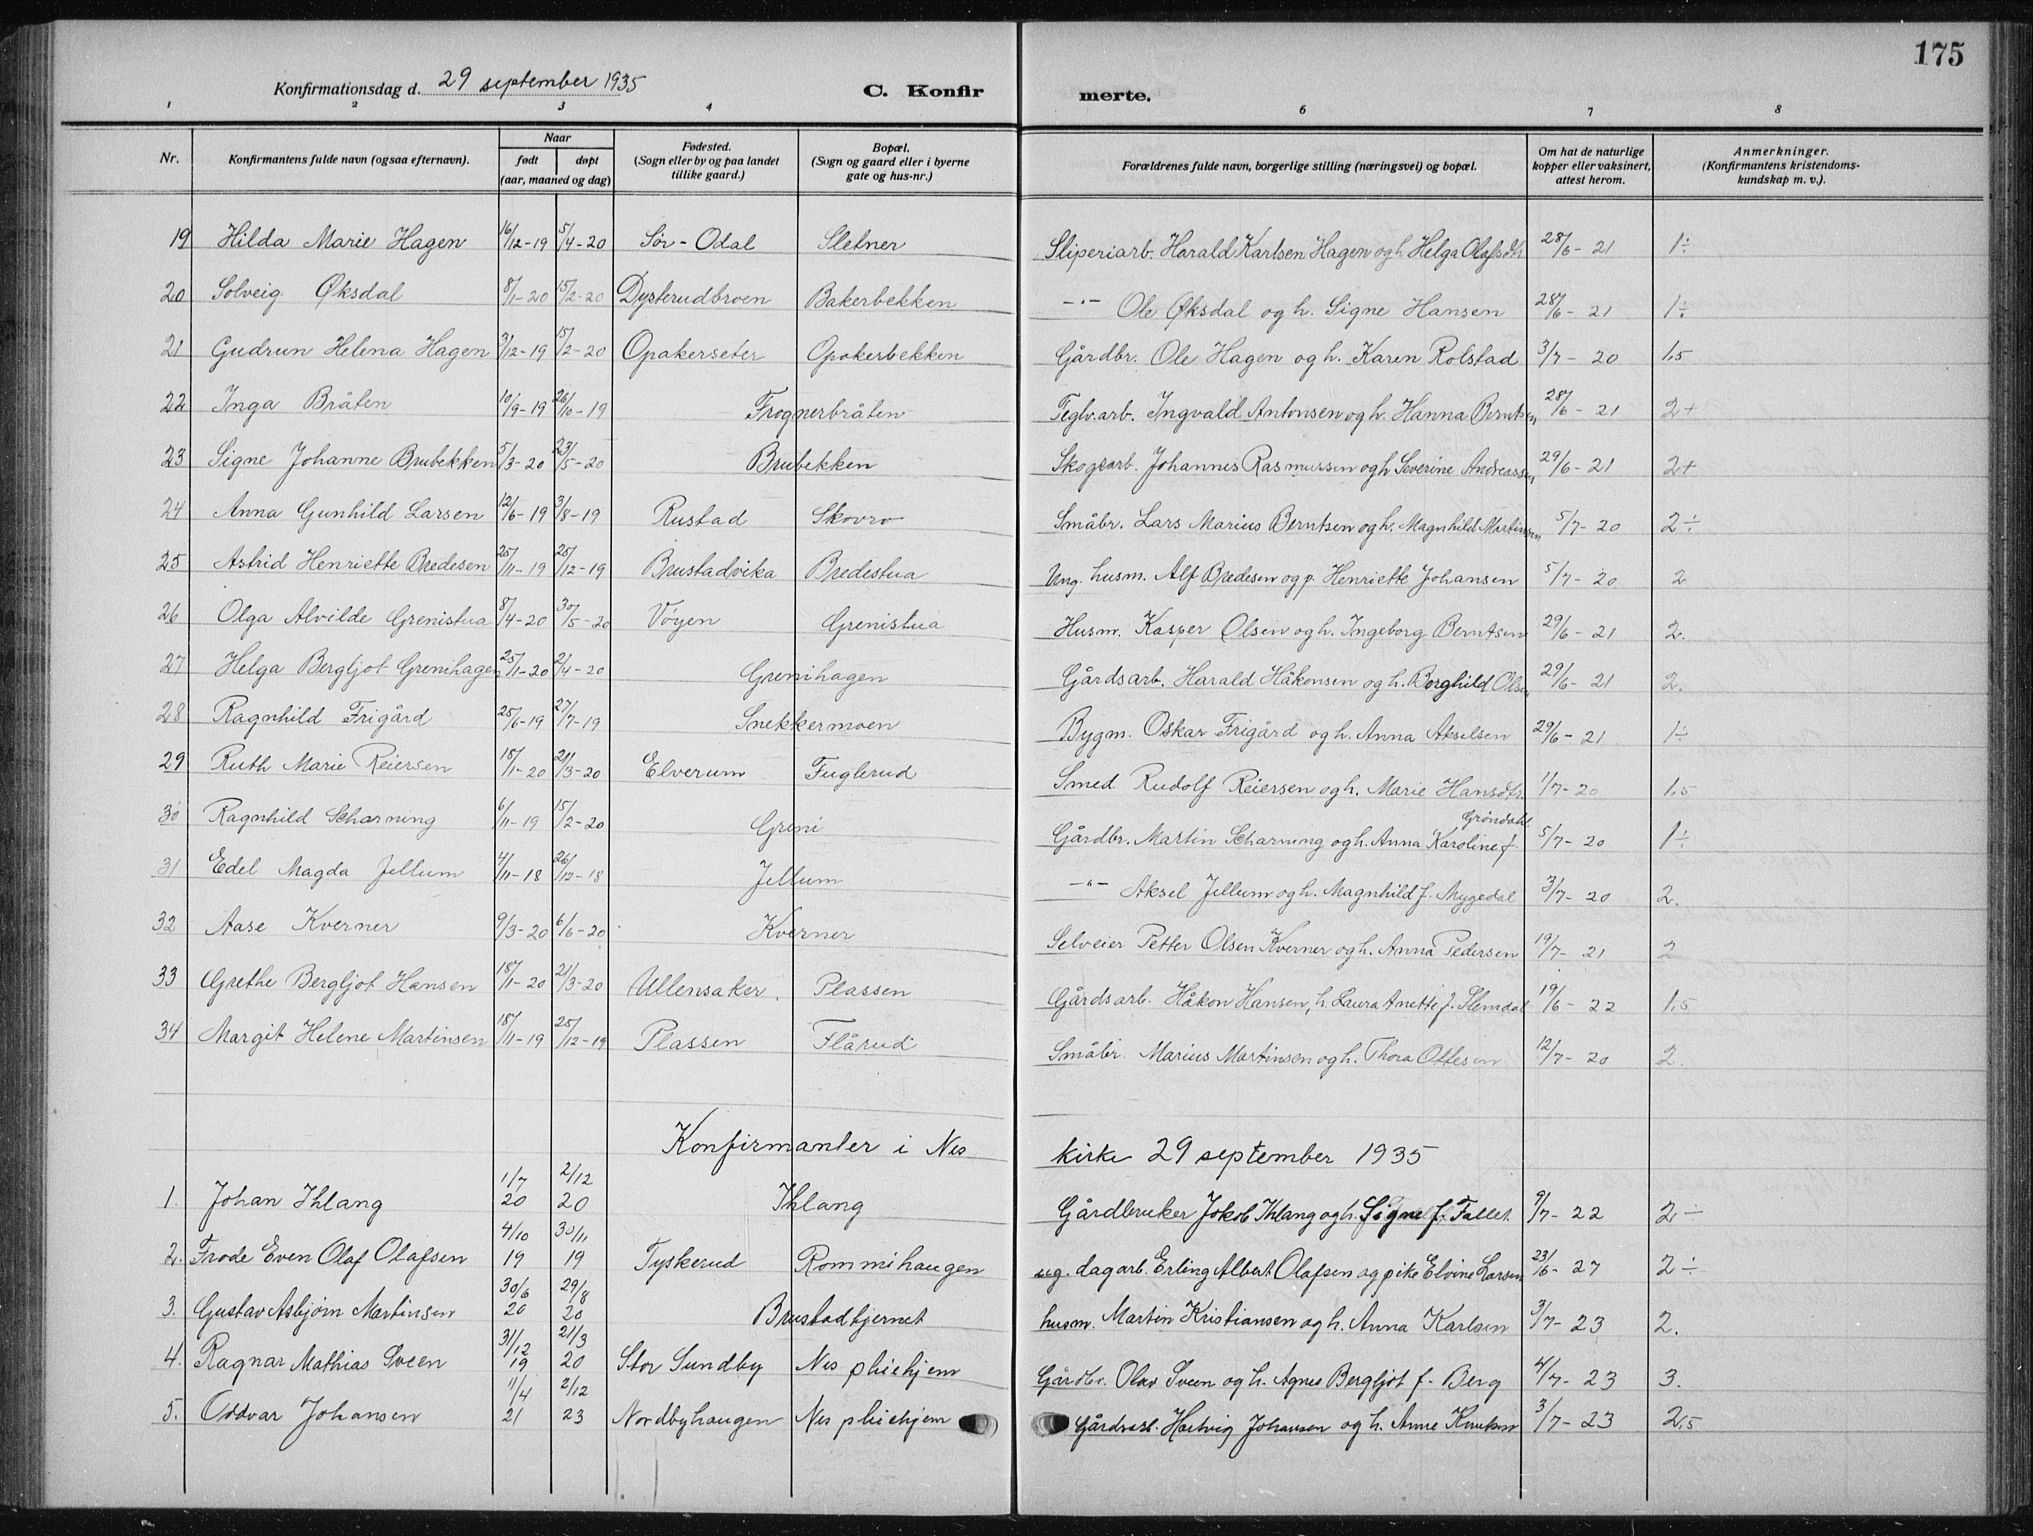 175
Konfirmationsdag d. 29 september 1935 C. Konfirmerte.
1 2 3 4 6 7 8
Nr. Konfirmantens fulde navn (ogsaa efternavn). Naar født døpt (aar, maaned og dag) Fødested. (Sogn eller by og paa landet tillike gaard.) Bopæl. (Sogn og gaard eller i byerne gate og hus-nr.) Forældrenes fulde navn, borgerlige stilling (næringsvei) og bopæl. Om hat de naturlige kopper eller vaksinert, attest herom. Anmerkninger. (Konfirmantens kristendomskundskap m. v.).
19 Hilda Marie Hagen 16/12-19 5/4-20 Sør-Odal Sletner Sliperiarb. Harald Karlsen Hagen og h. Helga Olafsdtr 28/6-21 1÷
20 Solveig Øksdal 8/1-20 15/2-20 Dysterudbroen Bakerbekken -"- Ole Øksdal og h. Signe Hansen 28/6-21 1÷
21 Gudrun Helena Hagen 3/12-19 15/2-20 Opakerseter Opakerbekken Gårdbr. Ole Hagen og h. Karen Rolstad 3/7-20 1,5
22 Inga Bråten 10/9-19 26/10-19 Frognerbråten Teglv.arb. Ingvald Antonsen og h. Hanna Berntsen 28/6-21 2+
23 Signe Johanne Brubekken 5/3-20 23/5-20 Brubekken Skogsarb. Johannes Rasmussen og h. Severine Andreassen 29/6-21 2+
24 Anna Gunhild Larsen 12/6-19 3/8-19 Rustad Skovro Småbr. Lars Marius Berntsen og h. Magnhild Martinsen 5/7-20 2÷
25 Astrid Henriette Bredesen 25/11-19 25/12-19 Brustadvika Bredestua Ung. husm. Alf Bredesen og p. Henriette Johansen 5/7-20 2
26 Olga Alvilde Grenistua 8/4-20 30/5-20 Vøyen Grenistua Husm. Kasper Olsen og h. Ingeborg Berntsen 29/6-21 2.
27 Helga Bergljot Grenihagen 25/1-20 2/4-20 Grenihagen Gårdsarb. Harald Håkonsen og h. Borghild Olsen 29/6-21 2.
28 Ragnhild Frigård 25/6-19 27/7-19 Snekkermoen Bygm. Oskar Frigård og h. Anna Akselsen 29/6-21 1÷
29 Ruth Marie Reiersen 18/1-20 21/3-20 Elverum Fuglerud Smed Rudolf Reiersen og h. Marie Hansdtr 1/7-20 1,5
30 Ragnhild Scharning 6/11-19 15/2-20 Greni Gårdbr. Martin Scharning og h. Anna Karoline f. Grøndahl 5/7-20 1÷
31 Edel Magda Jellum 4/11-18 26/12-18 Jellum -"- Aksel Jellum og h. Magnhild f. Mygedal 3/7-20 2.
32 Aase Kverner 9/3-20 6/6-20 Kverner Selveier Petter Olsen Kverner og h. Anna Pedersen 19/7-21 2
33 Grethe Bergljot Hansen 18/1-20 21/3-20 Ullensaker. Plassen Gårdsarb. Håkon Hansen, h. Laura Anette f. Slemdal 19/6-22 1,5
34 Margit Helene Martinsen 18/11-19 25/12-19 Plassen Flårud Småbr. Marius Martinsen og h. Thora Ottesen 12/7-20 2.
Konfirmanter i Nes kirke 29 september 1935
1. Johan Ihlang 1/7 20 2/12 20 Ihlang Gårdbruker Jakob Ihlang og h. Signe f. Fallet 9/7-22 2÷
2. Frode Even Olaf Olafsen 4/10 19 30/11 19 Tyskerud Rommihaugen ug. dagarb. Erling Albert Olafsen og pike Elvine Larsen 23/6-27 2÷
3. Gustav Asbjørn Martinsen 30/6 20 29/8 20 Brustadtjernet husm. Martin Kristiansen og h. Anna Karlsen 3/7-23 2.
4. Ragnar Mathias Sveen 31/12 19 21/3 20 Stor Sundby Nes pleiehjem Gårdbr. Olav Sveen og h. Agnes Bergljot f. Berg 4/7-23 3.
5. Oddvar Johansen 11/4 21 2/12 23 Nordbyhaugen Nes pleiehjem Gårdsarb. Hartvig Johansen og h. Anne Knutsen 3/7-23 2,5